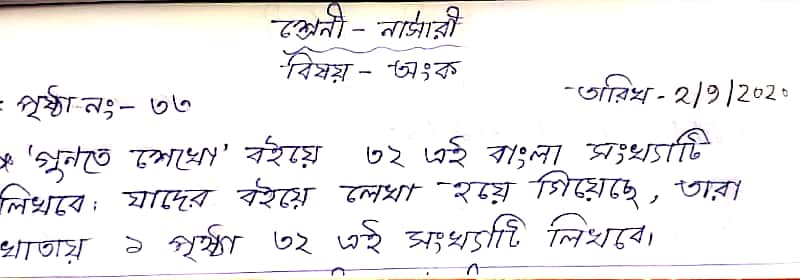 শ্রেনী - নার্সারী
বিষয় - অংক
পৃষ্ঠা নং - ৩৩
তারিখ - 2/9/2020
* 'গুনতে শেখো' বইয়ে ৩২ এই বাংলা সংখ্যাটি
লিখবে। যাদের বইয়ে লেখা হয়ে গিয়েছে, তারা
খাতায় ১ পৃষ্ঠা ৩২ এই সংখ্যাটি লিখবে।